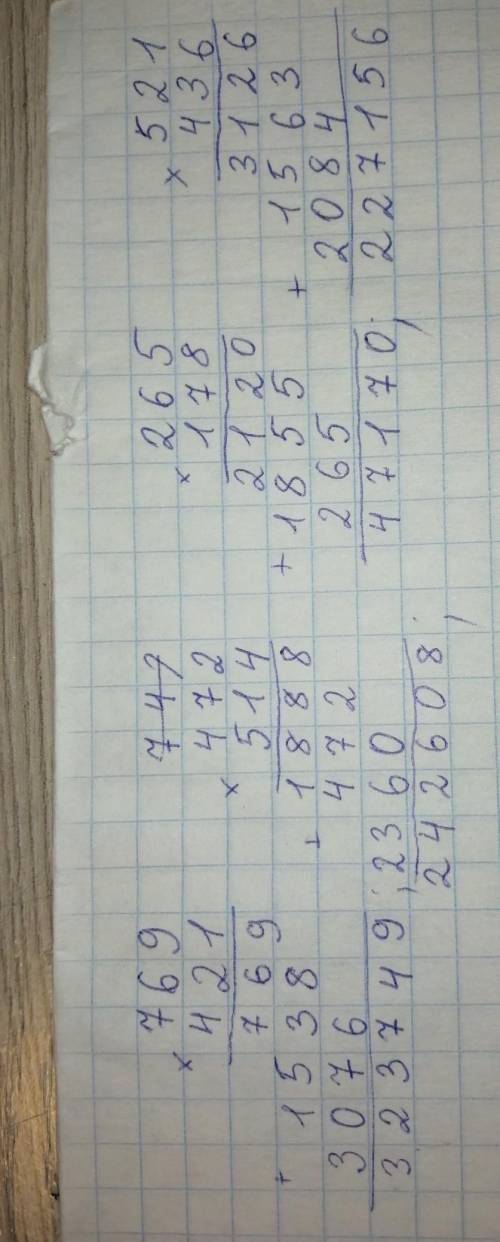 × 769
421
769
+ 1538
3076
323749;
747
× 472
514
1888
+ 472
2360
242608;
× 265
178
2120
+ 1855
265
47170;
× 521
436
3126
+ 1563
2084
227156